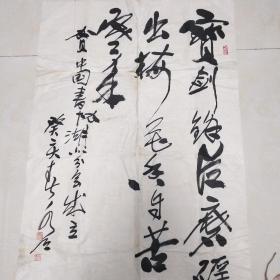 寶劍鋒從磨礪
出梅花香自苦
寒來
賀中國書協湖北分會成立
癸亥春